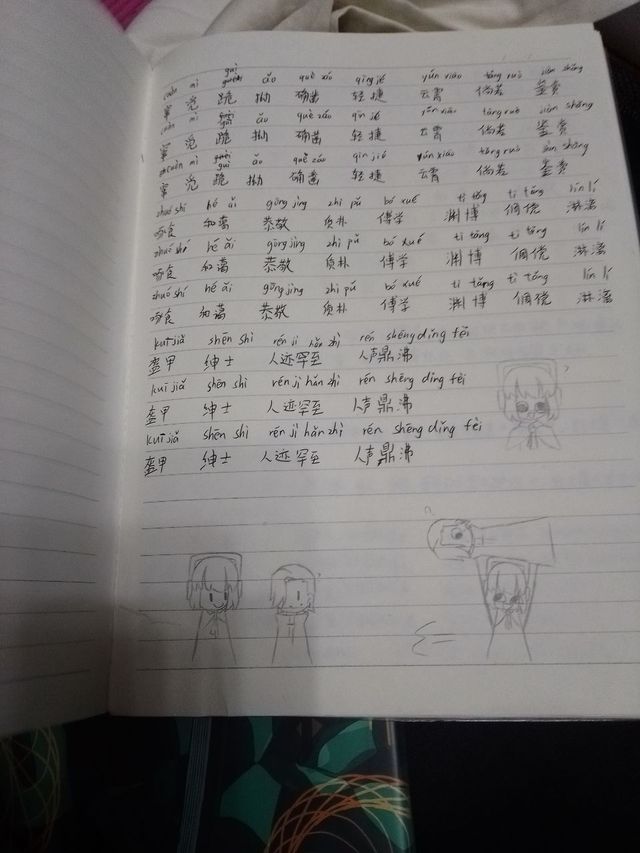 cuàn mì guì ǎo què záo qīng jié yún xiāo tǎng ruò jiàn shǎng
窜 觅 跪 拗 确凿 轻捷 云霄 倘若 鉴赏
cuàn mì guì ǎo què záo qīn jié yún xiāo tǎng ruò jiàn shǎng
窜 觅 跪 拗 确凿 轻捷 云霄 倘若 鉴赏
cuàn mì guì ǎo què záo qīn jié yún xiāo tǎng ruò jiàn shǎng
窜 觅 跪 拗 确凿 轻捷 云霄 倘若 鉴赏
zhuó shí hé ǎi gōng jìng zhì pǔ bó xué tì tǎng tì tǎng lín lí
啄食 和蔼 恭敬 质朴 博学 渊博 倜傥 淋漓
zhuó shí hé ǎi gōng jìng zhì pǔ bó xué tì tǎng tì tǎng lín lí
啄食 和蔼 恭敬 质朴 博学 渊博 倜傥 淋漓
zhuó shí hé ǎi gōng jìng zhì pǔ bó xué tì tǎng tì tǎng lín lí
啄食 和蔼 恭敬 质朴 博学 渊博 倜傥 淋漓
kuī jiǎ shēn shì rén jì hǎn zhì rén shēng dǐng fèi
盔甲 绅士 人迹罕至 人声鼎沸
kuī jiǎ shēn shì rén jì hǎn zhì rén shēng dǐng fèi
盔甲 绅士 人迹罕至 人声鼎沸
kuī jiǎ shēn shì rén jì hǎn zhì rén shēng dǐng fèi
盔甲 绅士 人迹罕至 人声鼎沸